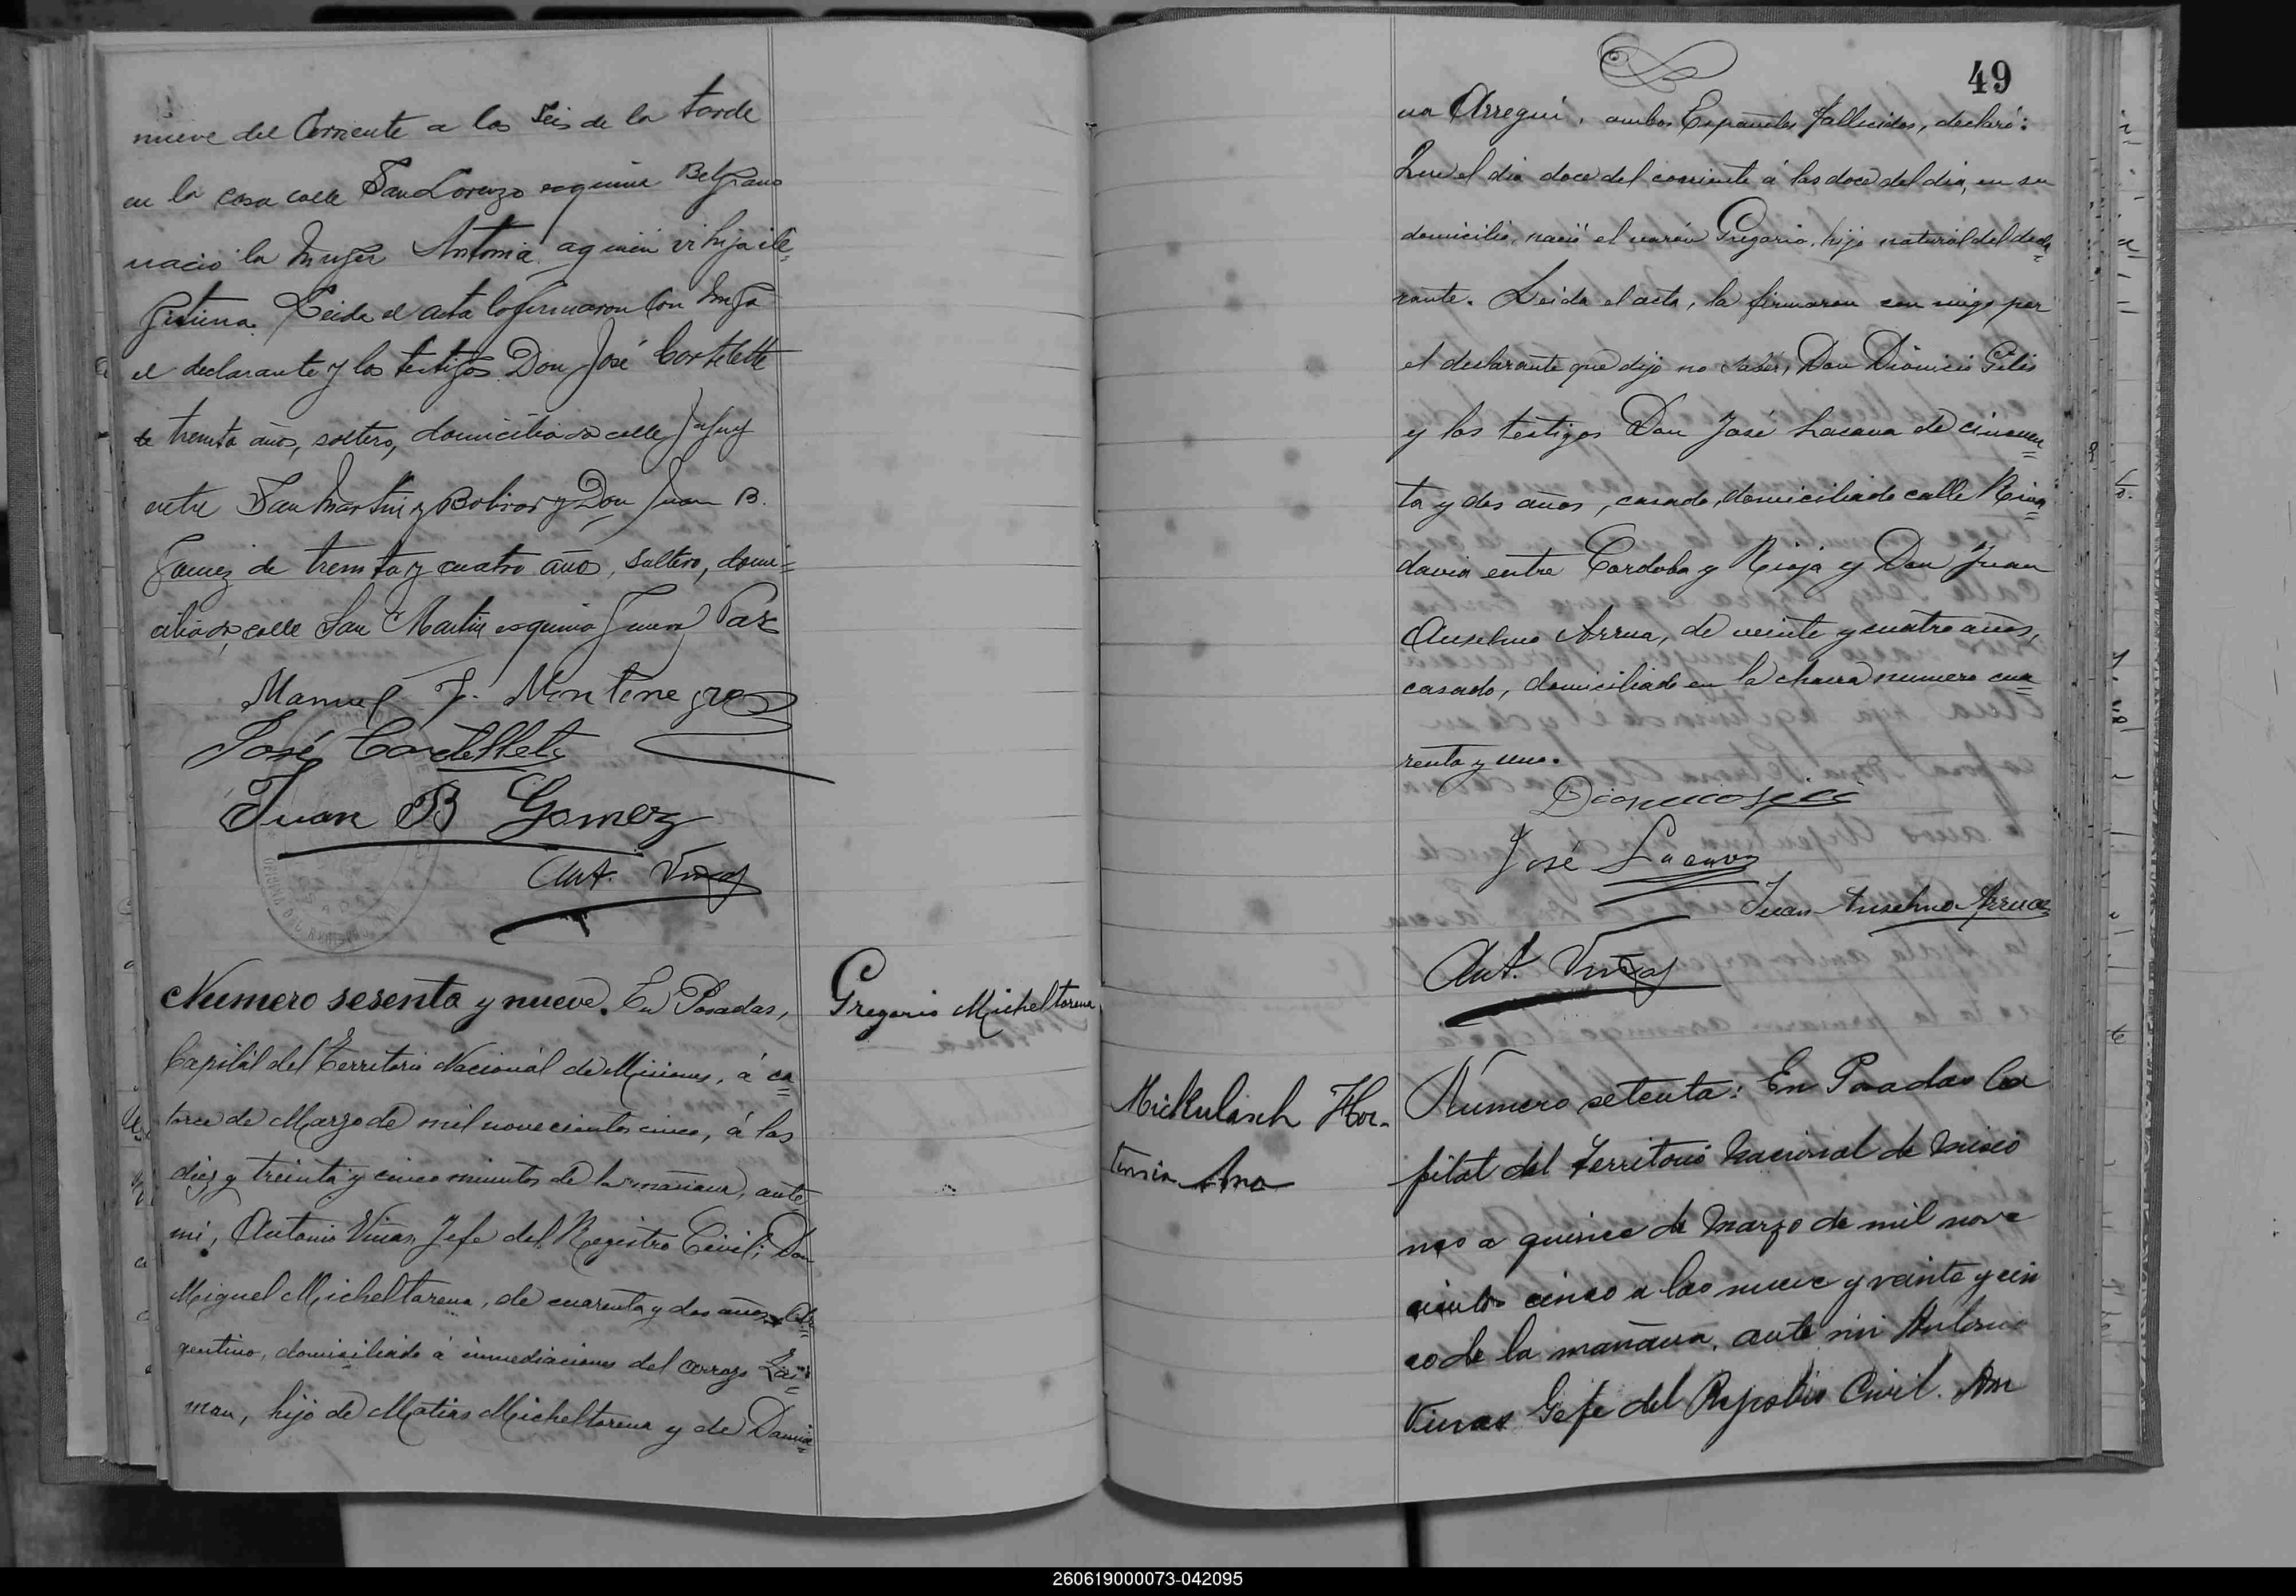 nueve del Corriente a las Seis de la tarde
en la casa calle San Lorenzo esquina Belgrano
nació la mujer Antonia, a quien vi hija ile=
gitima. Leida el acta la firmaron con migo
el declarante y los testigos Don José Cortelletti
de treinta años, soltero, domiciliado calle Jujuy
entre San Martin y Bolivar y Don Juan B.
Gomez de treinta y cuatro años, soltero, domi=
ciliado, calle San Martin esquina Junin Paz
Manuel J. Montenegro
José Cortelletti
Juan B Gomez
Ant. Viñas
Numero sesenta y nueve. En Posadas,
Capital del Territorio Nacional de Misiones, á ca=
torce de Marzo de mil novecientos cinco, á las
diez y treinta y cinco minutos de la mañana, ante
mi, Antonio Viñas, Jefe del Registro Civil; Don
Miguel Micheltorena, de cuarenta y dos años, Ar=
gentino, domiciliado á inmediaciones del arroyo Zai=
man, hijo de Matias Micheltorena y de Damia=
Gregorio Micheltorena
49
na Arregui, ambos Españoles fallecidos, declaró:
Que el dia doce del corriente á las doce del dia, en su
domicilio, nació el varón Gregorio, hijo natural del decla=
rante. Leida el acta, la firmaron con migo por
el declarante que dijo no saber, Don Dionicio Gilis
y los testigos Don José Lacava de cincuen=
ta y dos años, casado, domiciliado calle Riva=
davia entre Cordoba y Rioja y Don Juan
Anselmo Arrua, de veinte y cuatro años,
casado, domiciliado en la chacra numero cua=
renta y uno.
José Lacava
Juan Anselmo Arrua
Ant. Viñas
Mickulasch Hor-
tensia Ana
Numero setenta: En Posadas Ca
pital del Territorio Nacional de Misio
nes a quince de Marzo de mil nove
cientos cinco a las nueve y veinte y cin
co de la mañana, ante mi Antonio
Viñas Gefe del Rejistro Civil. Don
260619000073-042095